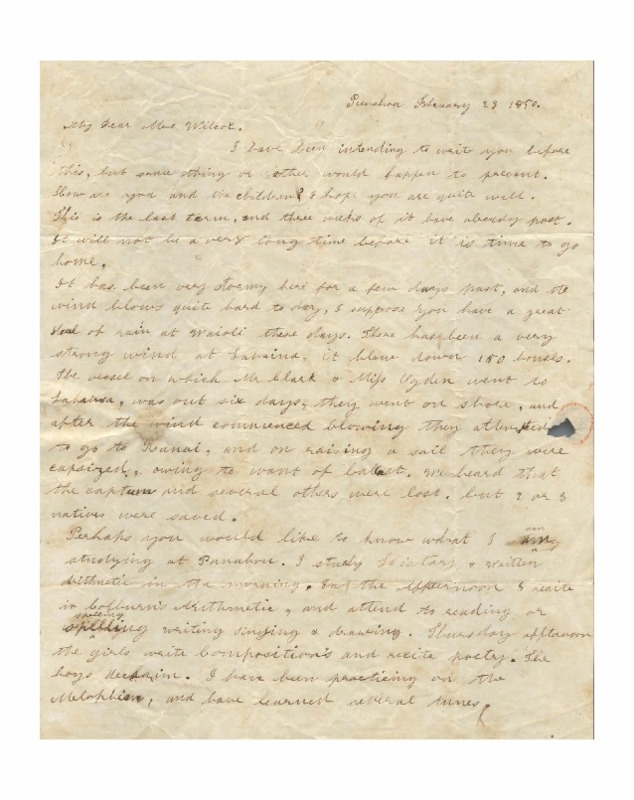 Punahou February 28 1850.
My Dear Mrs Wilcox.
I have been intending to write you before
this, but some thing or other would happen to prevent.
How are you and the children? I hope you are quite well.
This is the last term, and three weeks of it have already past.
It will not be a very long time before it is time to go
home.
It has been very stormy here for a few days past, and the
wind blows quite hard to day, I suppose you have a great
deal of rain at Waioli these days. There has been a very
strong wind at Lahaina, it blew down 150 houses.
The vessel on which Mr Clark & Miss Ogden went to
Lahaina, was out six days, they went on shore, and
after the wind commenced blowing they attempted
to go to Ranai, and on raising a sail they were
capsized, owing to want of balast. We heard that
the captain and several others were lost. but 2 or 3
natives were saved.
Perhaps you would like to know what I am
studying at Punahou. I study History & written
Arithmetic in the morning. In the afternoon I recite
in Colburn's Arithmetic, and attend to reading or
spelling writing singing & drawing. Thursday afternoon
the girls write compositions and recite poetry. The
boys declaim. I have been practicing on the
Melophine, and have learned several tunes,